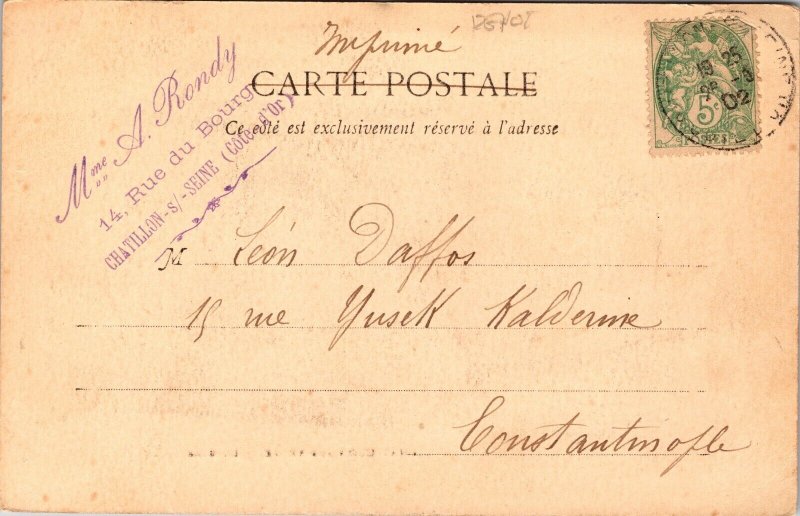 Imprimé
CARTE POSTALE
Ce côté est exclusivement réservé à l'adresse
Mme A. Rondy
14, Rue du Bourg
CHATILLON-s/-SEINE (Côte-d'Or)
M Léon Daffos
15 rue Yusek Kalderime
Constantinople
5
25
02